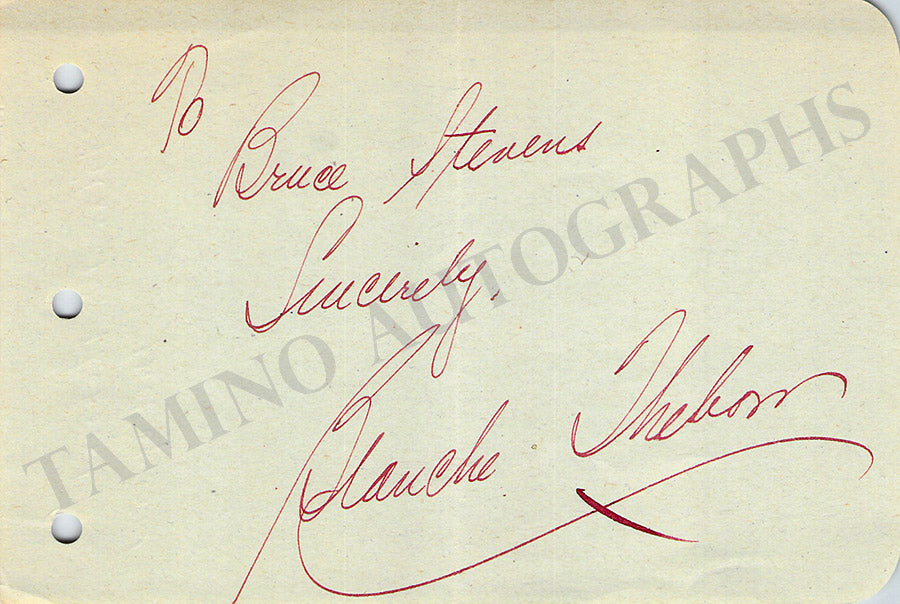 To
Bruce Stevens
Sincerely,
Blanche Thebom
TAMINO AUTOGRAPHS